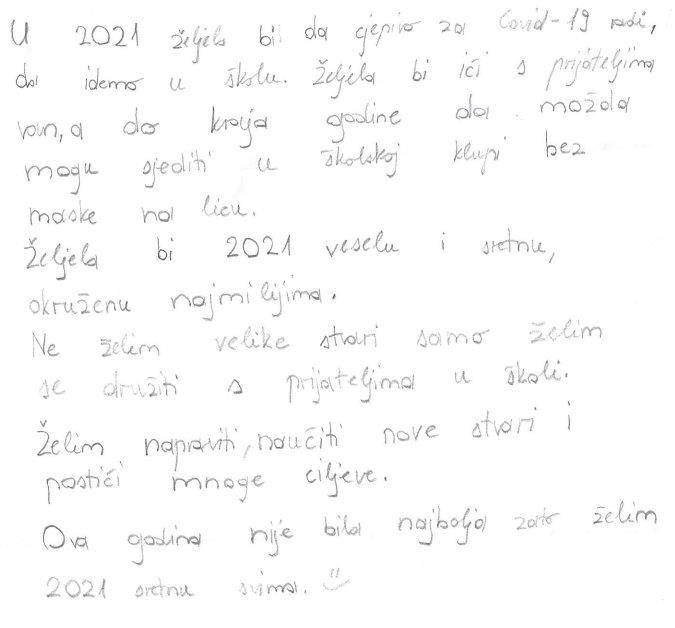 U 2021 željela bi da cjepivo za Covid-19 radi,
da idemo u školu. Željela bi ići s prijateljima
van, a do kraja godine da možda
mogu sjediti u školskoj klupi bez
maske na licu.
Željela bi 2021 veselu i sretnu,
okruženu najmilijima.
Ne želim velike stvari samo želim
se družiti s prijateljima u školi.
Želim napraviti, naučiti nove stvari i
postići mnoge ciljeve.
Ova godina nije bila najbolja zato želim
2021 sretnu svima.